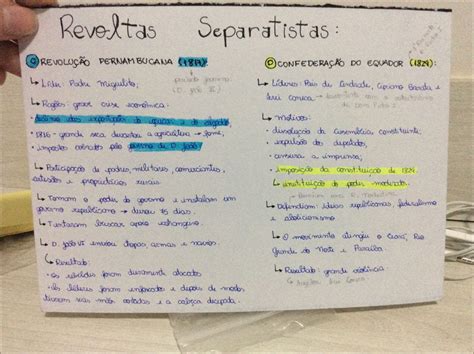 Revoltas Separatistas:
REVOLUÇÃO PERNAMBUCANA (1817):
período joanino
(D. João VI)
↳ Líder: Padre Miguelito,
↳ Razões: grave crise econômica:
baixa das exportações do açúcar e do algodão
• 1816 - grande seca devastou a agricultura → fome,
• impostos cobrados pelo governo de D. João
↳ Participação de padres, militares, comerciantes,
artesãos e proprietários rurais.
↳ Tomaram o poder do governo e instalaram um
governo republicano → durou 75 dias.
↳ Tentaram buscar apoio estrangeiro.
↳ D. João VI enviou tropas, armas e navios.
↳ Resultado:
• os revoltosos foram duramente atacados
• os líderes foram enforcados e depois de mortos
tiveram suas mãos cortadas e a cabeça decepada.
CONFEDERAÇÃO DO EQUADOR (1824):
↳ Líderes: Pais de Andrade, Cipriano Barata e
Frei Caneca
de Dom Pedro I
↳ Motivos:
• dissolução da Assembleia constituinte,
• expulsão dos deputados,
• censura a imprensa,
• imposição da constituição de 1824.
↳ instituição do poder moderador.
↳ Defendiam: ideias republicanas, federalismo
e abolicionismo
↳ O movimento atingiu o Ceará, Rio
Grande do Norte e Paraíba
↳ Resultado: grande violência
Frei Caneca